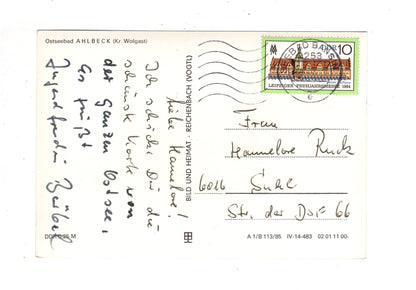 Ostseebad AHLBECK (Kr. Wolgast)
Liebe Hannelore!
Ich schicke Dir die
schönste Karte von
der ganzen Ostsee,
Es grüßt
Jugendfreundin Bärbel
DDR 0,25 M
BILD UND HEIMAT · REICHENBACH (VOGTL)
DDR 10
LEIPZIGER FRÜHJAHRSMESSE 1984
Frau
Hannelore Ruck
6016 Suhl
Str. der DSF 66
A 1/B 113/85 IV-14-483 02 01 11 00